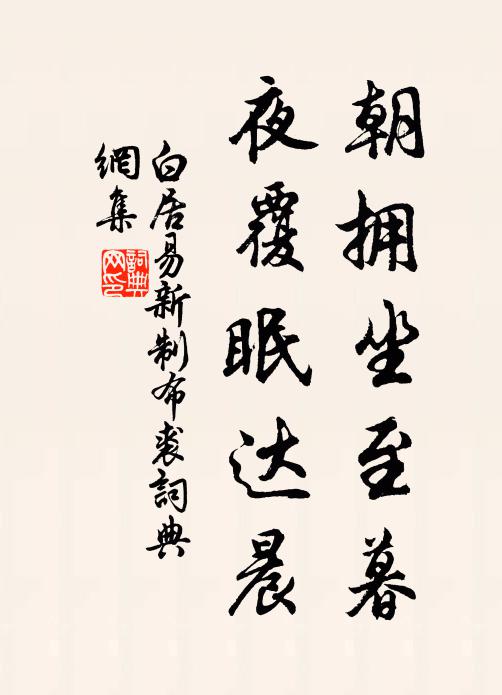 朝拥坐至暮
夜覆眠达晨
白居易新制布裘詞典
網集
詞典
网印